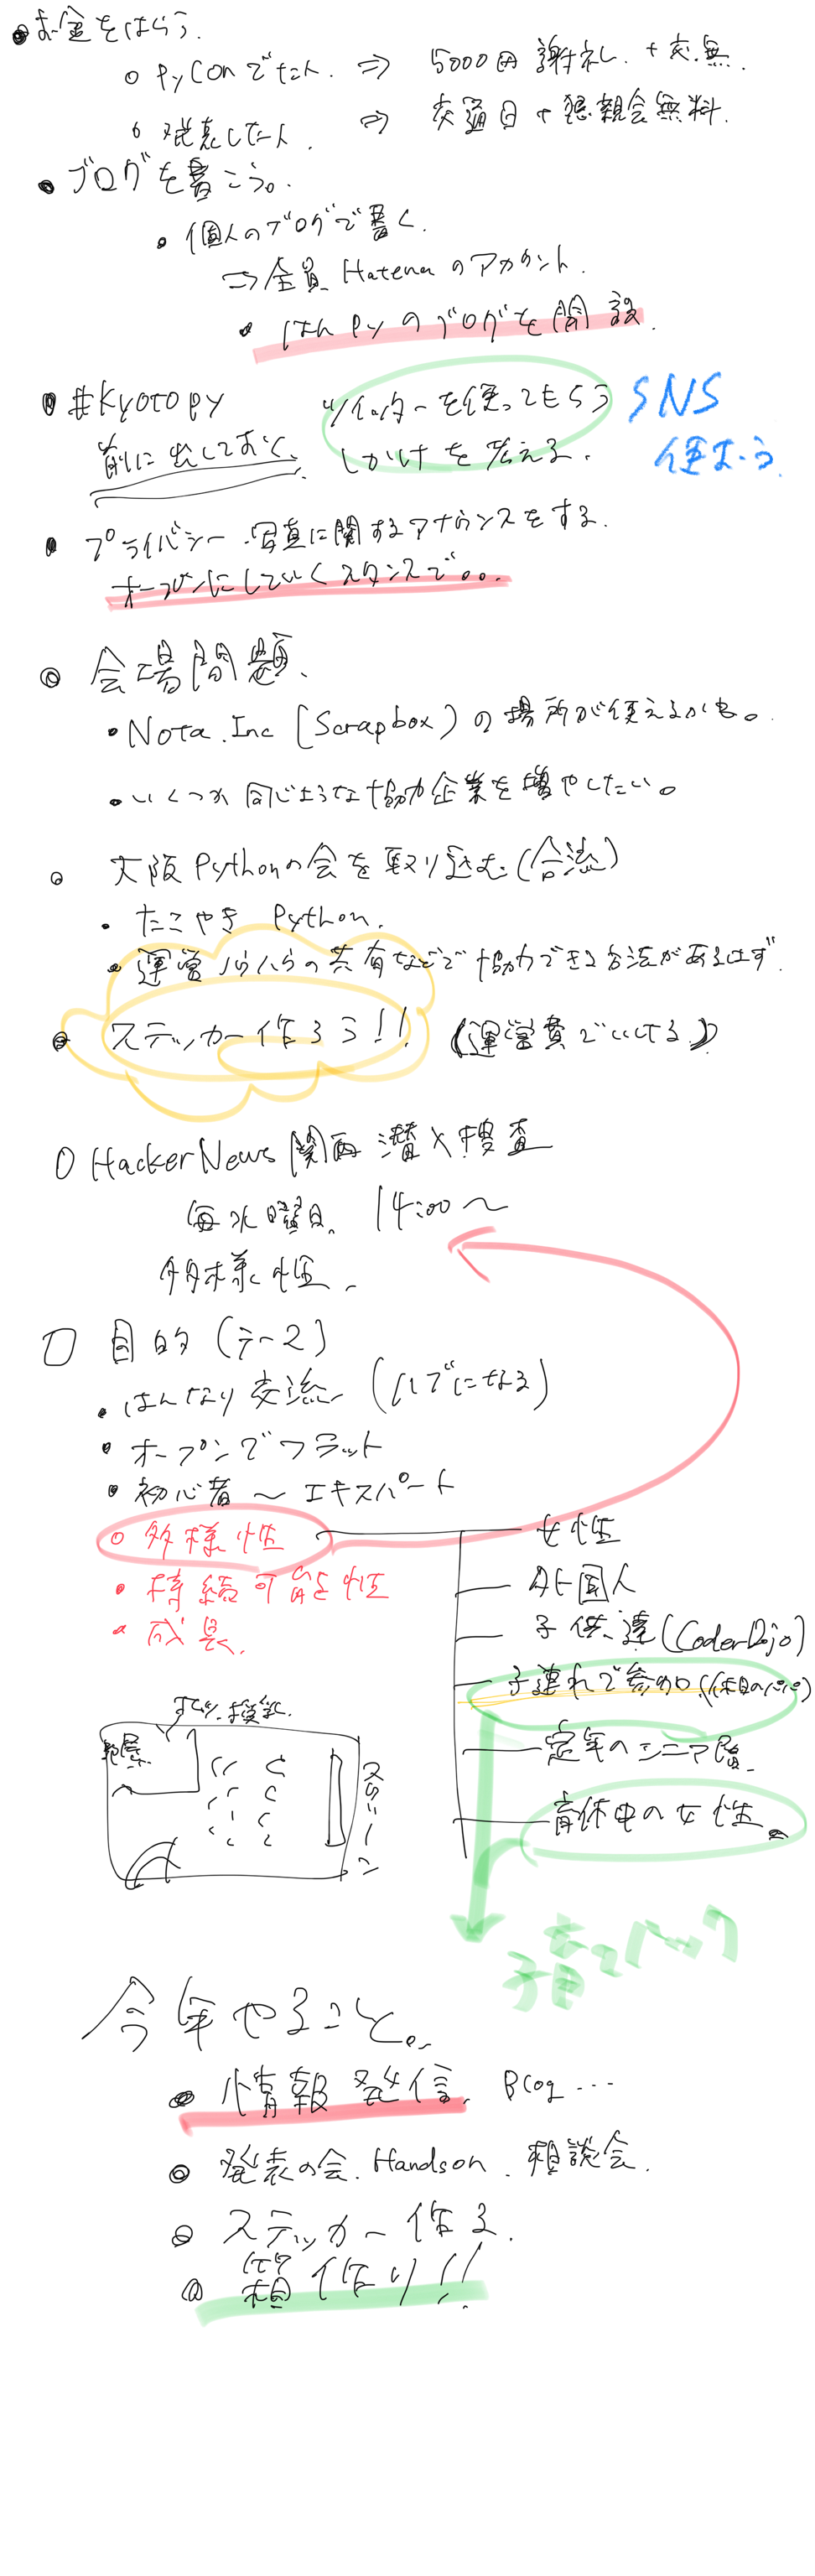 お金をはらう.
PyConでた人. ⇒ 5000円 謝礼. + 交.無.
発表した人. ⇒ 交通日 + 懇親会無料.
ブログを書こう。
個人のブログで書く.
⇒ 全員 Hatena のアカウント.
はんPyのブログを開設.
#Kyotopy ツイッターを使ってもらう SNS
前に出しておく. しかけを考える. 使おう.
プライバシー.写真に関するアナウンスをする.
オープンにしていくスタンスで。。.
会場問題.
Nota.Inc [Scrapbox) の場所が使えるかも。
いくつか同じような協力企業を増やしたい。
大阪Pythonの会を取り込む(合流)
たこやき Python.
運営ノウハウの共有などで協力できる方法があるはず.
ステッカー作ろう!! (運営費でいける)
HackerNews 関西 潜入捜査
毎水曜日. 14:00〜
多様性.
目的(テーマ)
はんなり交流 (ハブになる)
オープンでフラット
初心者〜エキスパート
多様性 女性
持続可能性 外国人
成長. 子供達(CoderDojo)
子連れで参加.(休日のパパ)
定年のシニア層.
育休中の女性。
部屋
スクリーン
子育てハック
今年やること。
情報発信. Blog...
発表の会. Handson. 相談会.
ステッカー作る.
箱作り!!